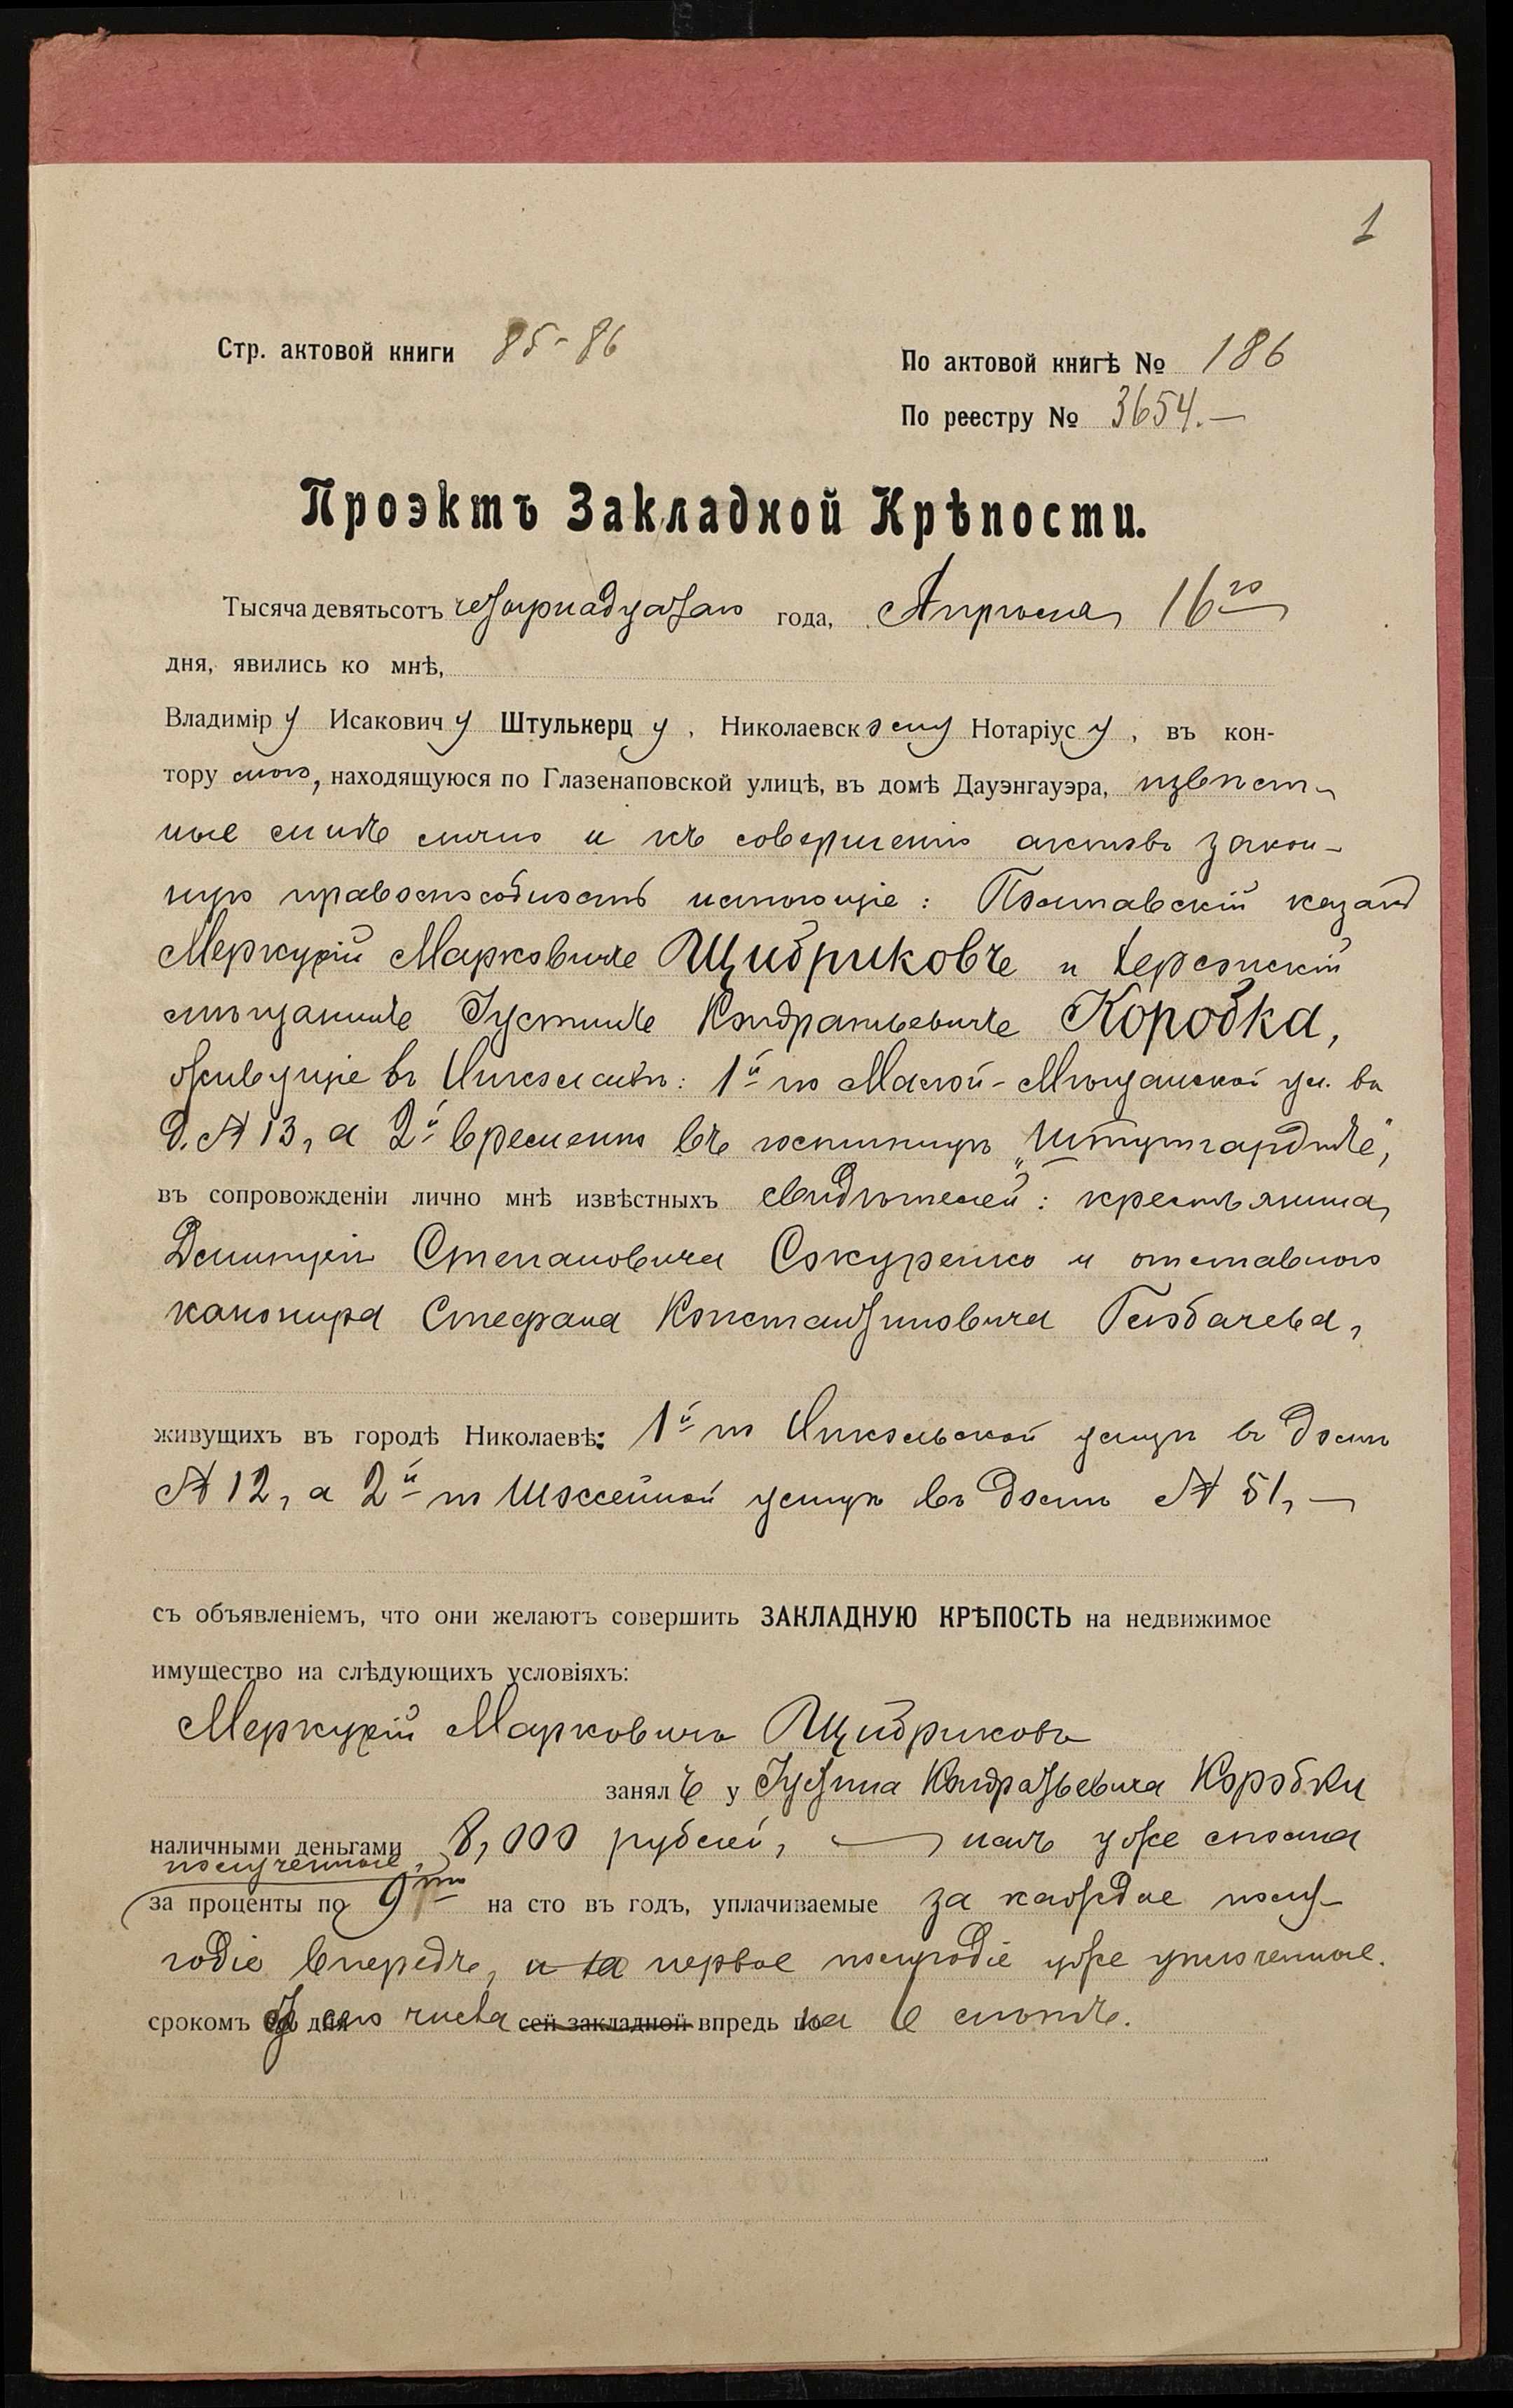 1
Стр. актовой книги 85-86
По актовой книгѣ № 186
По реестру № 3654.—
Проэктъ Закладной Крѣпости.
Тысяча девятьсотъ четырнадцатаго года, Апрѣля 16го
дня, явились ко мнѣ,
Владимір у Исакович у Штулькерц у , Николаевск ому Нотаріус у , въ кон-
тору мою, находящуюся по Глазенаповской улицѣ, въ домѣ Дауэнгауэра, извѣст-
ные мнѣ лично и къ совершенію актовъ закон-
ную правоспособность имѣющіе: Полтавскій казакъ
Меркурій Марковичъ Щибриковъ и Херсонскій
мѣщанинъ Іустинъ Кондратьевичъ Коробка,
живущіе въ Николаевѣ: 1й по Малой-Мѣщанской ул. въ
д. № 13, а 2й временно въ гостиницѣ „Штутгардтъ",
въ сопровожденіи лично мнѣ извѣстныхъ свидѣтелей: крестьянина
Димитрія Степановича Сокуренко и отставного
канонира Стефана Константиновича
живущихъ въ городѣ Николаевѣ: 1й по Никольской улицѣ въ домѣ
№ 12, а 2й по Шоссейной улицѣ въ домѣ № 51, —
съ объявленіемъ, что они желаютъ совершить ЗАКЛАДНУЮ КРѢПОСТЬ на недвижимое
имущество на слѣдующихъ условіяхъ:
Меркурій Марковичъ Щибриковъ
занял ъ у Іустина Кондратьевича Коробки
наличными деньгами 8,000 рублей, — имъ уже сполна
полученные,
за проценты по 9ти на сто въ годъ, уплачиваемые за каждое полу-
годіе впередъ, и за первое полугодіе уже уплоченные.
срокомъ отъ сего числа сей закладной впредь на 6 лѣтъ.